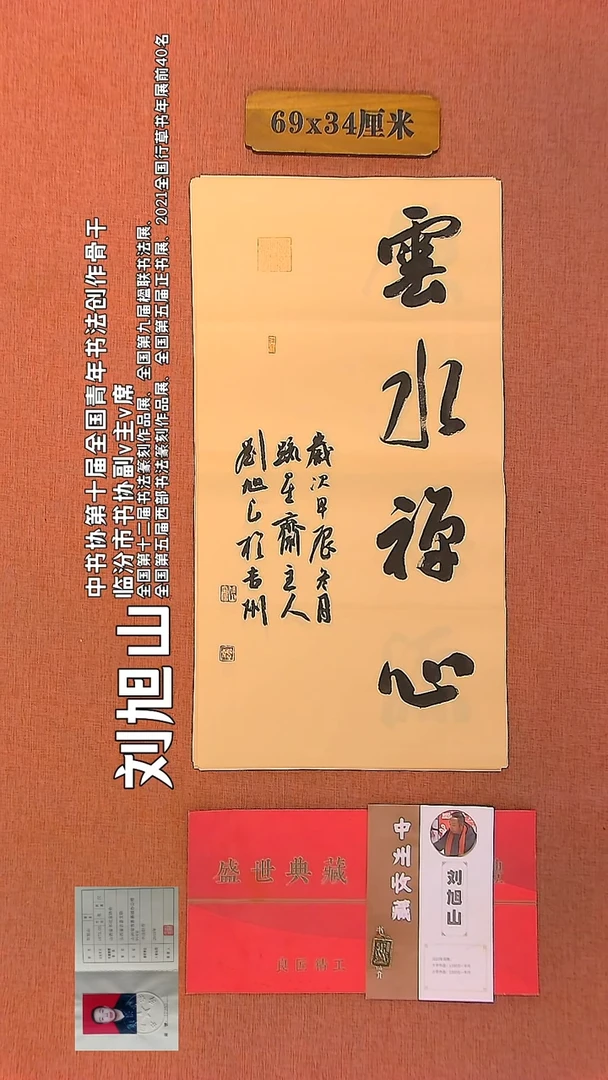 69x34厘米
雲水禅心
歲次甲辰冬月
疏星齋主人
劉旭山於吉州
刘旭山
中书协第十届全国青年书法创作骨干
临汾市书协副v主v席
全国第十二届书法篆刻作品展、全国第九届楹联书法展、
全国第五届西部书法篆刻作品展、全国第五届正书展、2021全国行草书年展前40名
盛世典藏
中州收藏
刘旭山